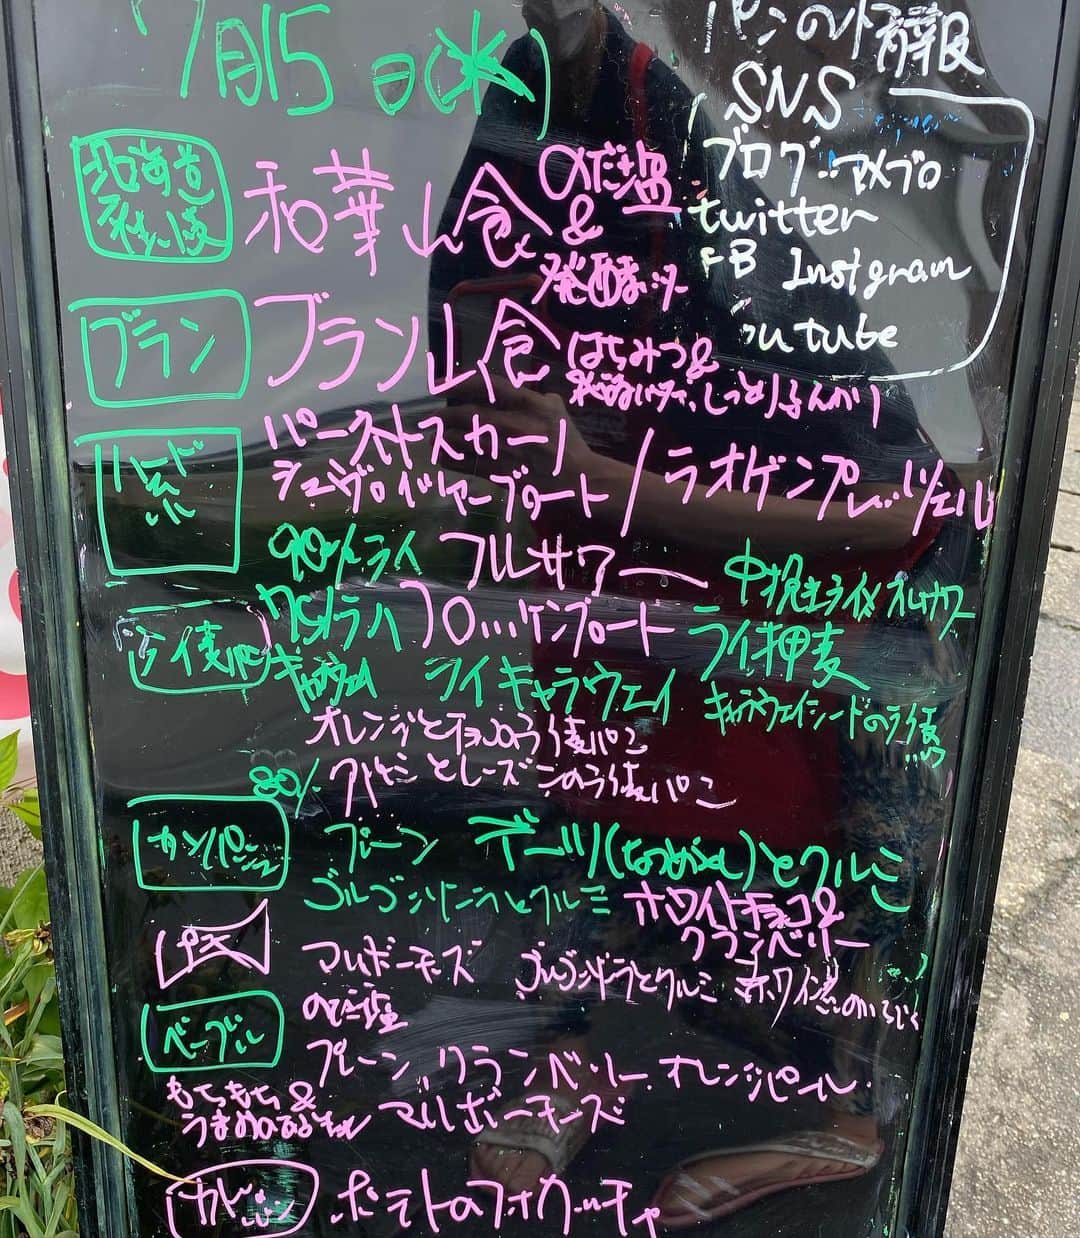 7月15日(水)
パンの
SNS
ブログ:アメブロ
twitter
FB Instgram
Youtube
北海道
和華山食
のだ塩
&
発酵バター
ブラン
ブラン山食
はちみつ&
しっとり
ハード
パーネトスカーノ
シュヴロ
ブロート
/ラオゲンプレッツェル
90%ライ フルサワー
中挽きライ麦フルサワー
ライ麦パン
フロッケンブロート
ライ押麦
キャラウェイ
ライキャラウェイ
キャラウェイシードのライ麦
オレンジとチョコのライ麦パン
80% クルミとレーズンのライ麦パン
カンパーニュ
プレーン デーツ(なつめやし)とクルミ
ゴルゴンゾーラとクルミ ホワイトチョコ&
クランベリー
マルボーチーズ
ゴルゴンゾーラとクルミ 赤ワイン煮のいちじく
ベーグル
のだ塩
プレーン、クランベリー、オレンジピール、
もちもち&
マルボーチーズ
ポテトのフォカッチャ